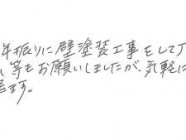 年振りに壁塗装工事をして
等もお願いしましたが、気軽に
ます。